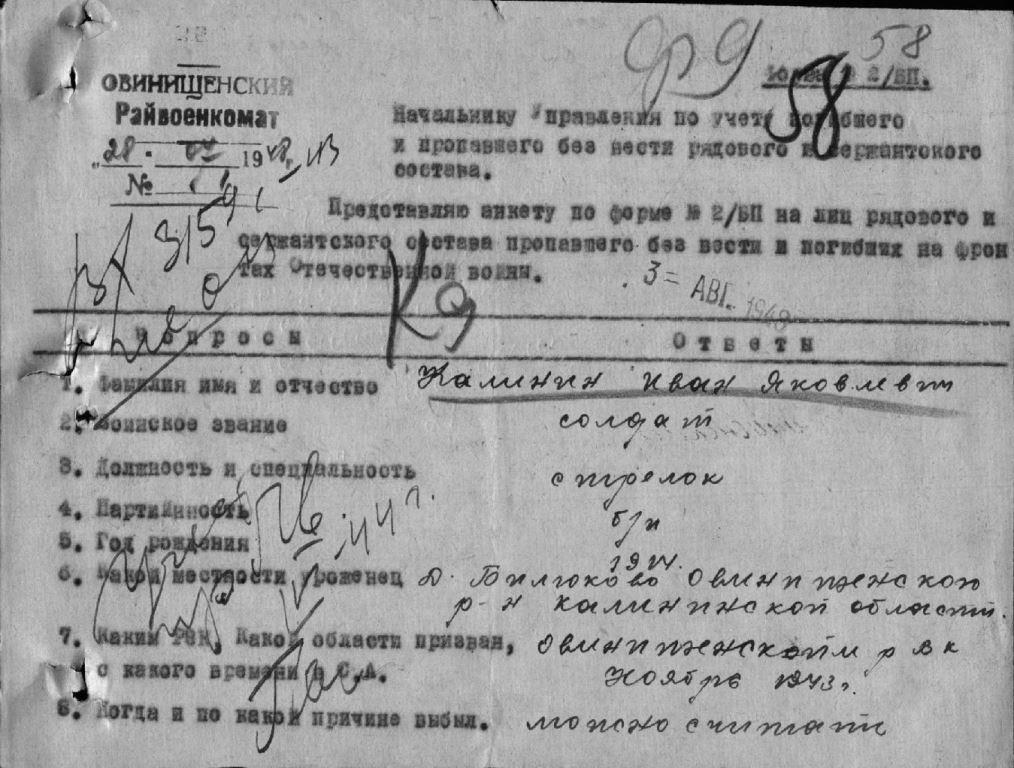 58
ОВИНИЩЕНСКИЙ
Райвоенкомат
№ 2/БП.
58
Начальнику Управления по учету погибшего
и пропавшего без вести рядового и сержантского
состава.
"28. 07 1948 г.
№
Представляю анкету по форме № 2/БП на лиц рядового и
сержантского состава пропавшего без вести и погибших на фрон
тах Отечественной войны.
3 = АВГ. 1948
Вопросы Ответы
1. Фамилия имя и отчество Калинин Иван Яковлевич
2. Воинское звание солдат
3. Должность и специальность стрелок
4. Партийность б/п
5. Год рождения
6. Какой местности уроженец д. Билюково Овинищенского
р-н Калининской области.
7. Каким РВК, Какой области призван, Овинищенским рвк
с какого времени в С.А. Ноябрь 1943 г.
8. Когда и по какой причине выбыл. можно считать